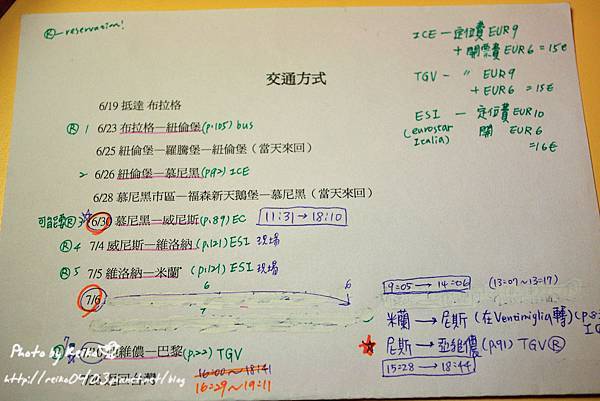 Ⓡ—reservation!
ICE — 定位費 EUR 9
+ 開票費 EUR 6 = 15€
TGV — 〃 EUR 9
+ EUR 6 = 15€
ESI — 定位費 EUR 10
(eurostar Italia) 開 EUR 6
=16€
交通方式
6/19 抵達 布拉格
Ⓡ 1 6/23 布拉格—紐倫堡 (p.105) bus
6/25 紐倫堡—羅騰堡—紐倫堡（當天來回）
2 6/26 紐倫堡—慕尼黑 (p.92) ICE
6/28 慕尼黑市區—福森新天鵝堡—慕尼黑（當天來回）
可能要Ⓡ 3 6/30 慕尼黑—威尼斯 (p.89) EC 11:31 → 18:10
Ⓡ 4 7/4 威尼斯—維洛納 (p.121) ESI 現場
Ⓡ 5 7/5 維洛納—米蘭 (p.121) ESI 現場
7/6 6 6
9:05 → 14:06 (13:07~13:17)
米蘭 → 尼斯 (在Ventimiglia轉)
7
尼斯 → 亞維儂 (p.91) TGV Ⓡ
15:28 → 18:44
維儂—巴黎 (p.22) TGV
16:00 ~ 18:41
16:29 ~ 19:11
Photo by Reiko